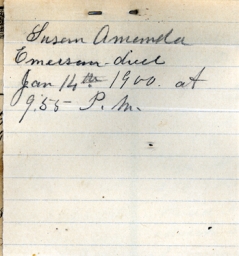 Susan Amanda
Emerson died
Jan 14th 1900. at
9.55 P.M.